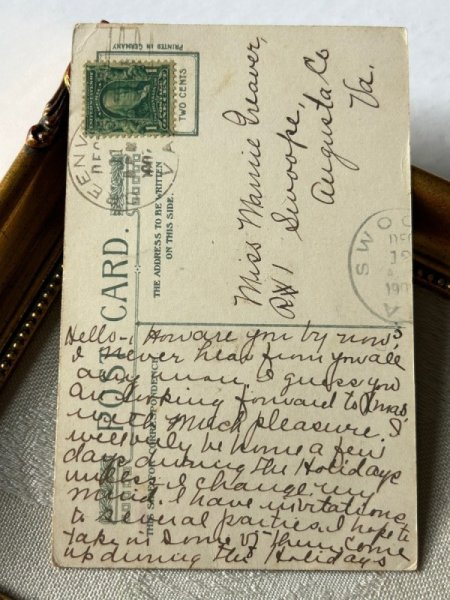 PRINTED IN GERMANY
TWO CENTS
POST CARD.
THE ADDRESS TO BE WRITTEN
ON THIS SIDE.
Miss Mamie Greaver,
R#1 Swoope,
Augusta Co
Va.
SWOO
DEC
19
190
DEC
190
VA
THIS SPACE FOR CORRESPONDENCE
Hello-, How are you by now?
I never hear from you all
any more. I guess you
are looking forward to Xmas
with much pleasure. I
will only be home a few
days during the Holidays
unless I change my
mind. I have invitations
to several parties. I hope to
take in some of them come
up during the Holidays